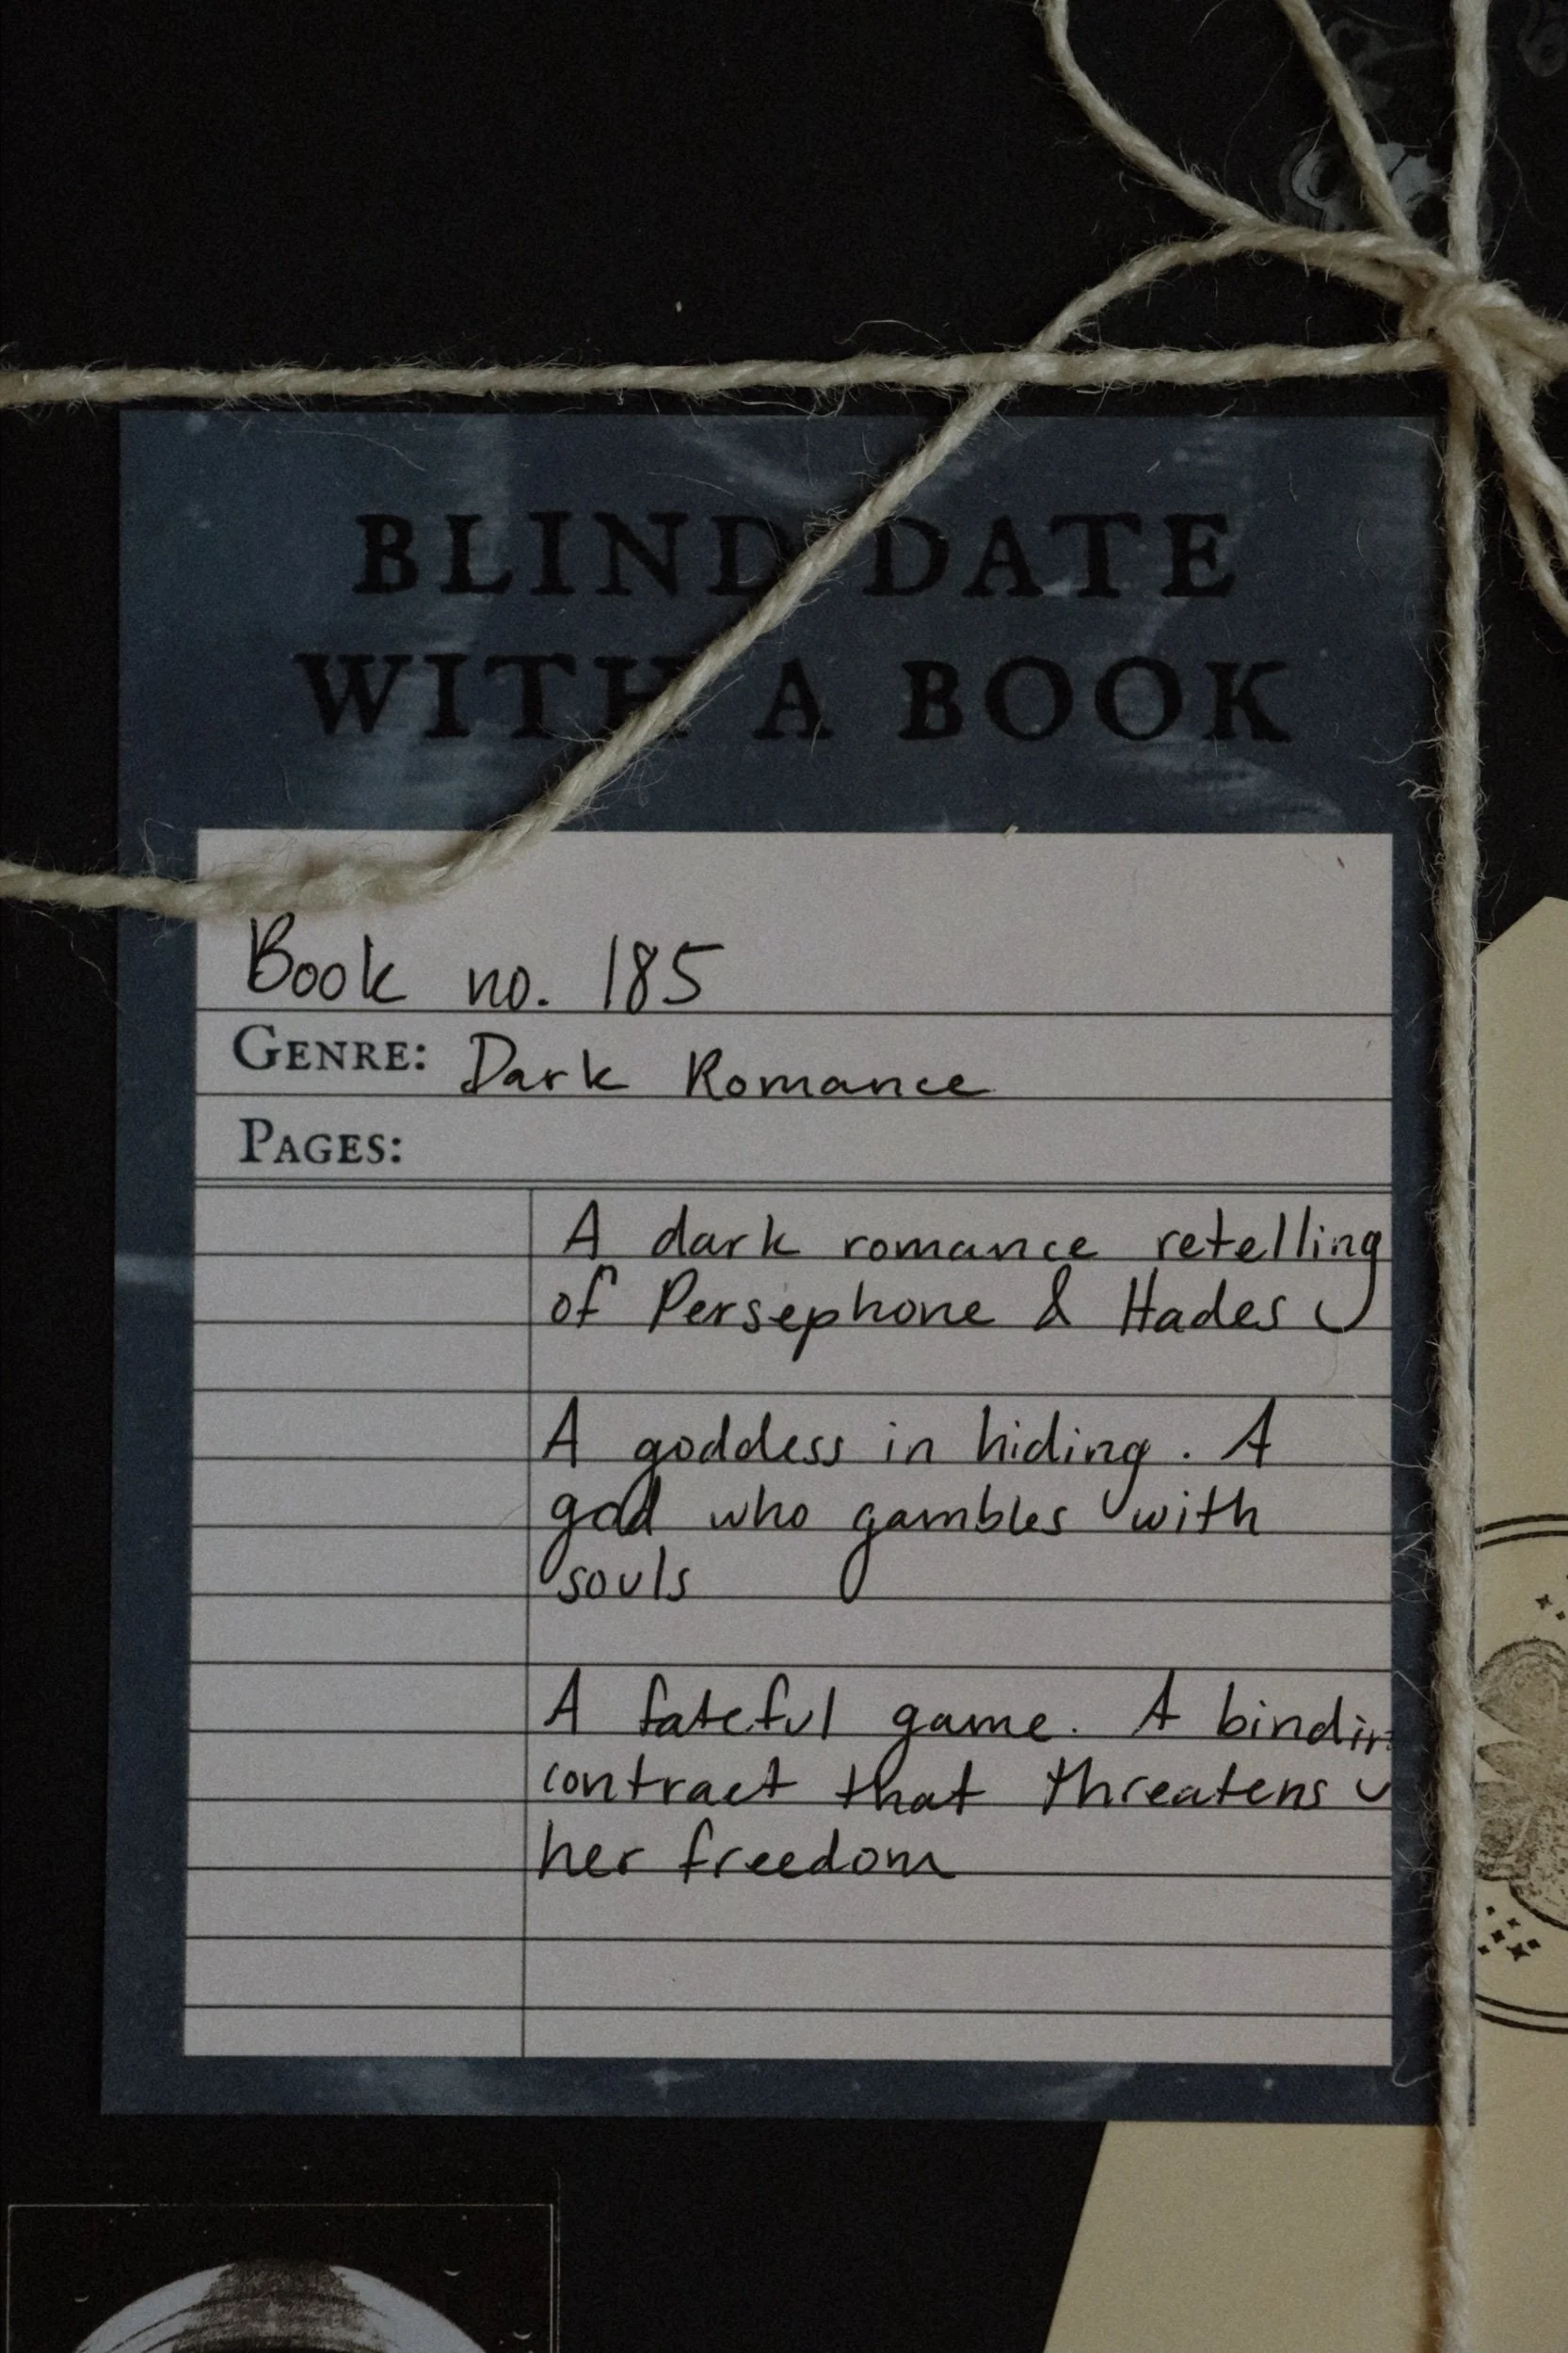 BLIND DATE
WITH A BOOK
Book no. 185
GENRE: Dark Romance
PAGES:
A dark romance retelling
of Persephone & Hades
A goddess in hiding. A
god who gambles with
souls
A fateful game. A bindin
contract that threatens
her freedom